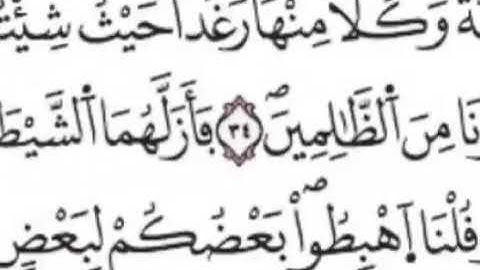 ـةَ وَكُلَا مِنْهَا رَغَدًا حَيْثُ شِئْتُـ
ـنَا مِنَ اَ۬لظَّٰلِمِينَۖ ٣٤ فَأَزَلَّهُمَا اَ۬لشَّيْطَـ
وَقُلْنَا اَ۪هْبِطُواْۖ بَعْضُكُمْ لِبَعْضٍ